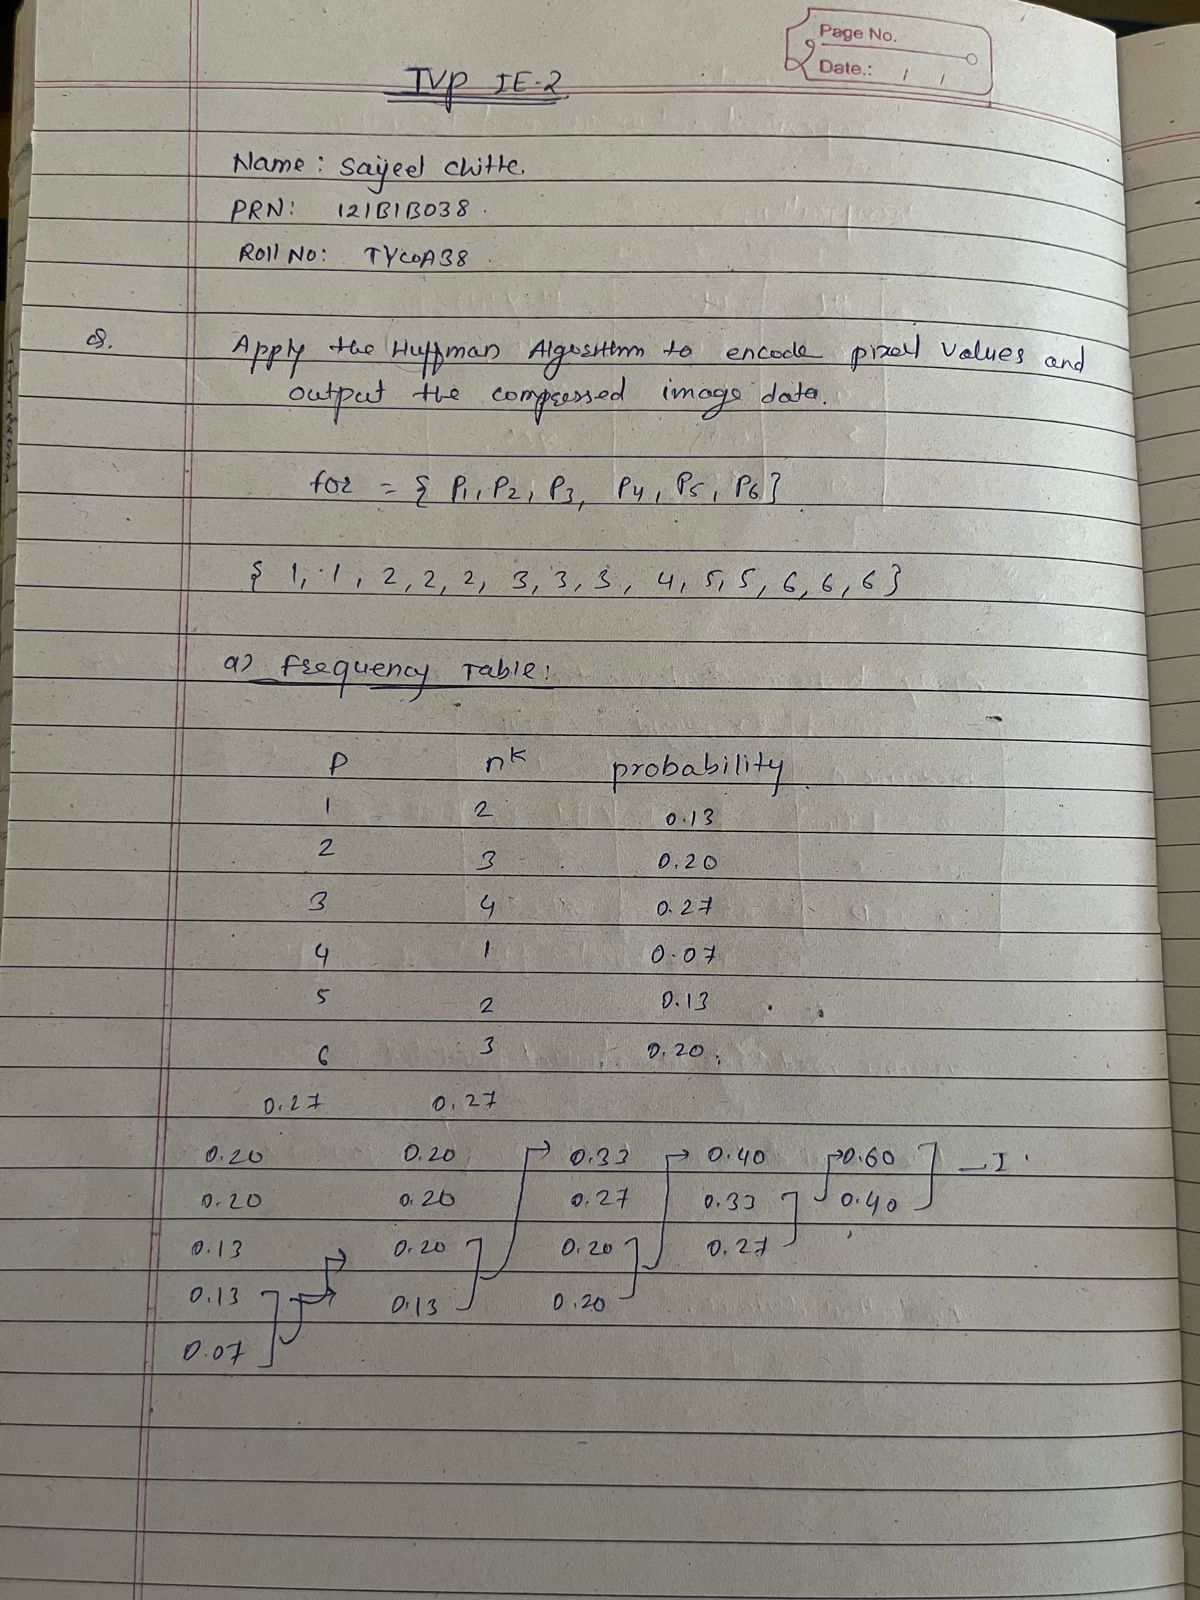 Page No.
Date.: / /
IVP IE-2
Name: Saijeel Chitte.
PRN: 121B1B038.
Roll No: TYCOA38.
Q. Apply the Huffman Algorithm to encode pixel values and
output the compressed image data.
for = { P1, P2, P3, P4, P5, P6 }
{ 1, 1, 2, 2, 2, 3, 3, 3, 4, 5, 5, 6, 6, 6 }
a) Frequency Table:
P n^k probability
1 2 0.13
2 3 0.20
3 4 0.27
4 1 0.07
5 2 0.13
6 3 0.20
0.27 0.27
0.20 0.20 0.33 0.40 0.60 I
0.20 0.20 0.27 0.33 0.40
0.13 0.20 0.20 0.27
0.13 0.13 0.20
0.07